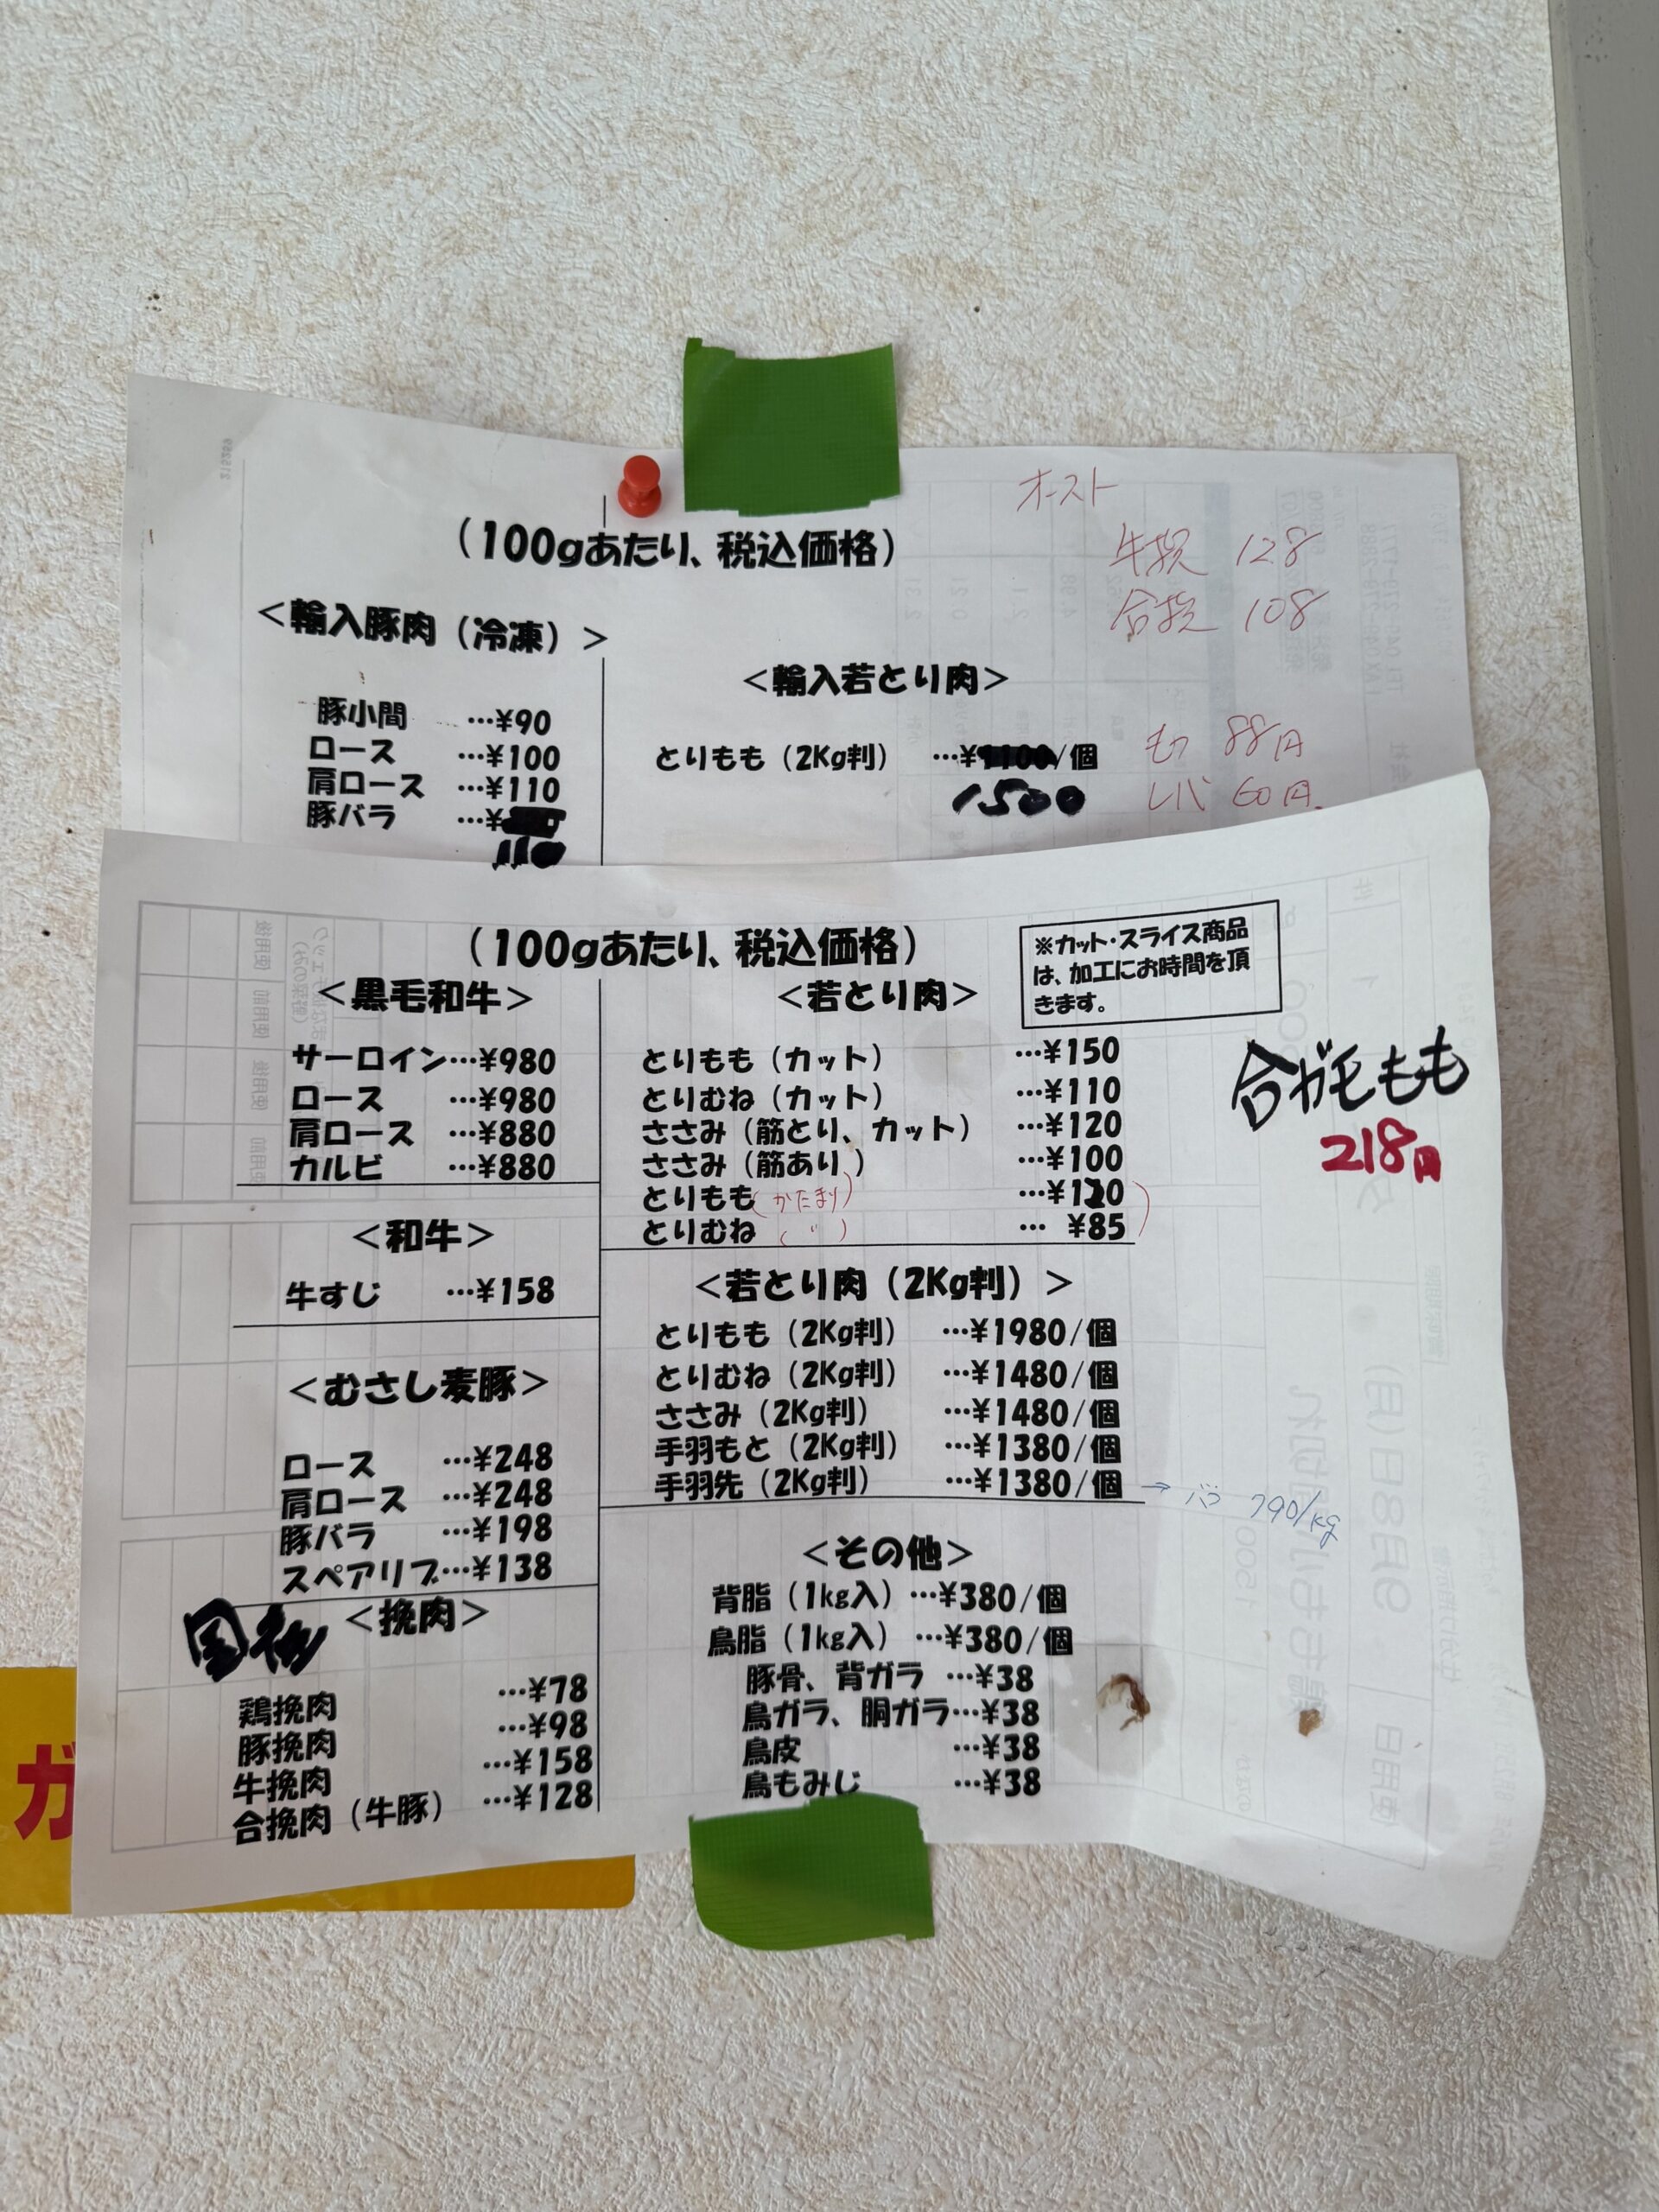 オースト
(100gあたり、税込価格)
牛挽 128
合挽 108
<輸入豚肉(冷凍)>
豚小間 …¥90
ロース …¥100
肩ロース …¥110
豚バラ …¥
110
<輸入若とり肉>
とりもも(2Kg判) …¥1100/個
1500
もつ 88円
レバ 60円
(100gあたり、税込価格)
※カット・スライス商品
は、加工にお時間を頂
きます。
<黒毛和牛>
サーロイン…¥980
ロース …¥980
肩ロース …¥880
カルビ …¥880
<和牛>
牛すじ …¥158
<むさし麦豚>
ロース …¥248
肩ロース …¥248
豚バラ …¥198
スペアリブ…¥138
国産 <挽肉>
鶏挽肉 …¥78
豚挽肉 …¥98
牛挽肉 …¥158
合挽肉(牛豚) …¥128
<若とり肉>
とりもも(カット) …¥150
とりむね(カット) …¥110
ささみ(筋とり、カット) …¥120
ささみ(筋あり) …¥100
とりもも(かたまり) …¥120
とりむね( 〃 ) … ¥85
合ガモもも
218円
<若とり肉(2Kg判)>
とりもも(2Kg判) …¥1980/個
とりむね(2Kg判) …¥1480/個
ささみ(2Kg判) …¥1480/個
手羽もと(2Kg判) …¥1380/個
手羽先(2Kg判) …¥1380/個 → バラ 790/kg
<その他>
背脂(1kg入)…¥380/個
鳥脂(1kg入) …¥380/個
豚骨、背ガラ …¥38
鳥ガラ、胴ガラ…¥38
鳥皮 …¥38
鳥もみじ …¥38
ガ